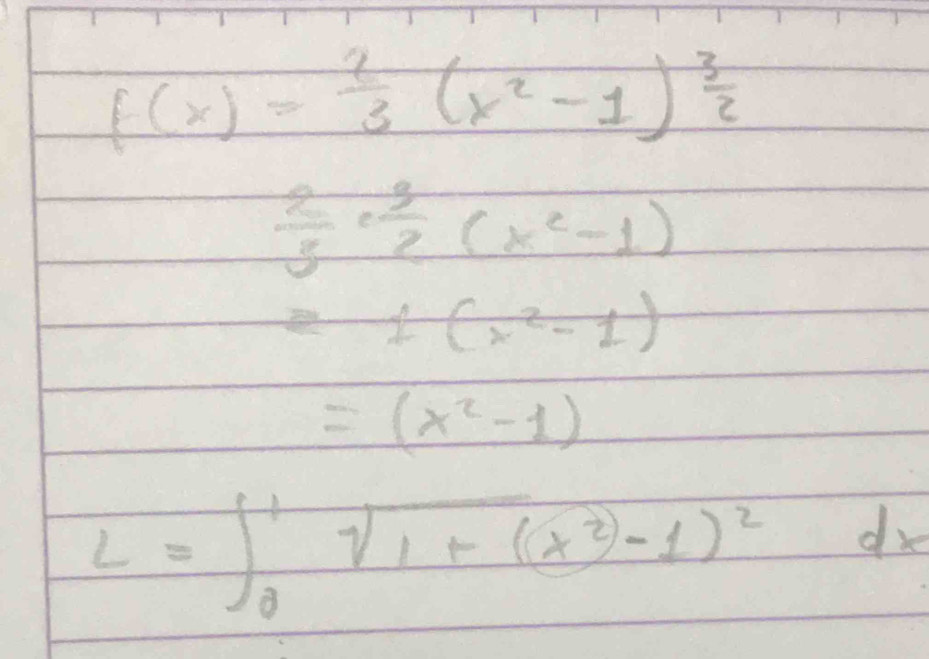 f(x) = 2/3 (x² - 1)^(3/2)
2/3 · 3/2 (x² - 1)
= 1 (x² - 1)
= (x² - 1)
L = ∫₀¹ √(1 + (x²) - 1)² dx